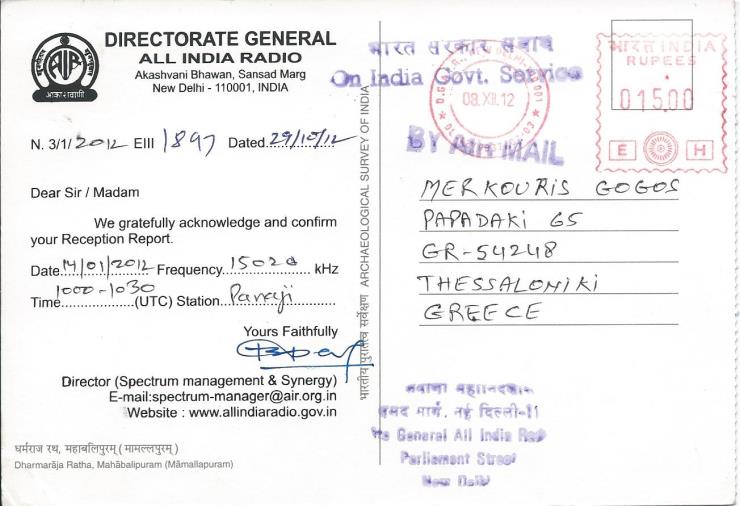 DIRECTORATE GENERAL
ALL INDIA RADIO
Akashvani Bhawan, Sansad Marg
New Delhi - 110001, INDIA
AIR
आकाशवाणी
N. 3/1/2012 EIII 1897 Dated 29/10/12
Dear Sir / Madam
We gratefully acknowledge and confirm
your Reception Report.
Date 14/01/2012 Frequency 15020 kHz
Time 1000-1030 (UTC) Station Panaji
Yours Faithfully
Director (Spectrum management & Synergy)
E-mail:spectrum-manager@air.org.in
Website : www.allindiaradio.gov.in
धर्मराज रथ, महाबलिपुरम् (मामल्लपुरम्)
Dharmarāja Ratha, Mahābalipuram (Māmallapuram)
भारतीय पुरातत्व सर्वेक्षण ARCHAEOLOGICAL SURVEY OF INDIA
भारत सरकार सेवार्थ
On India Govt. Service
BY AIR MAIL
08.XII.12
भारत INDIA
RUPEES
015.00
E H
MERKOURIS GOGOS
PAPADAKI 65
GR-54248
THESSALONIKI
GREECE
संसद मार्ग, नई दिल्ली-11
General All India
Parliament Street
New Delhi